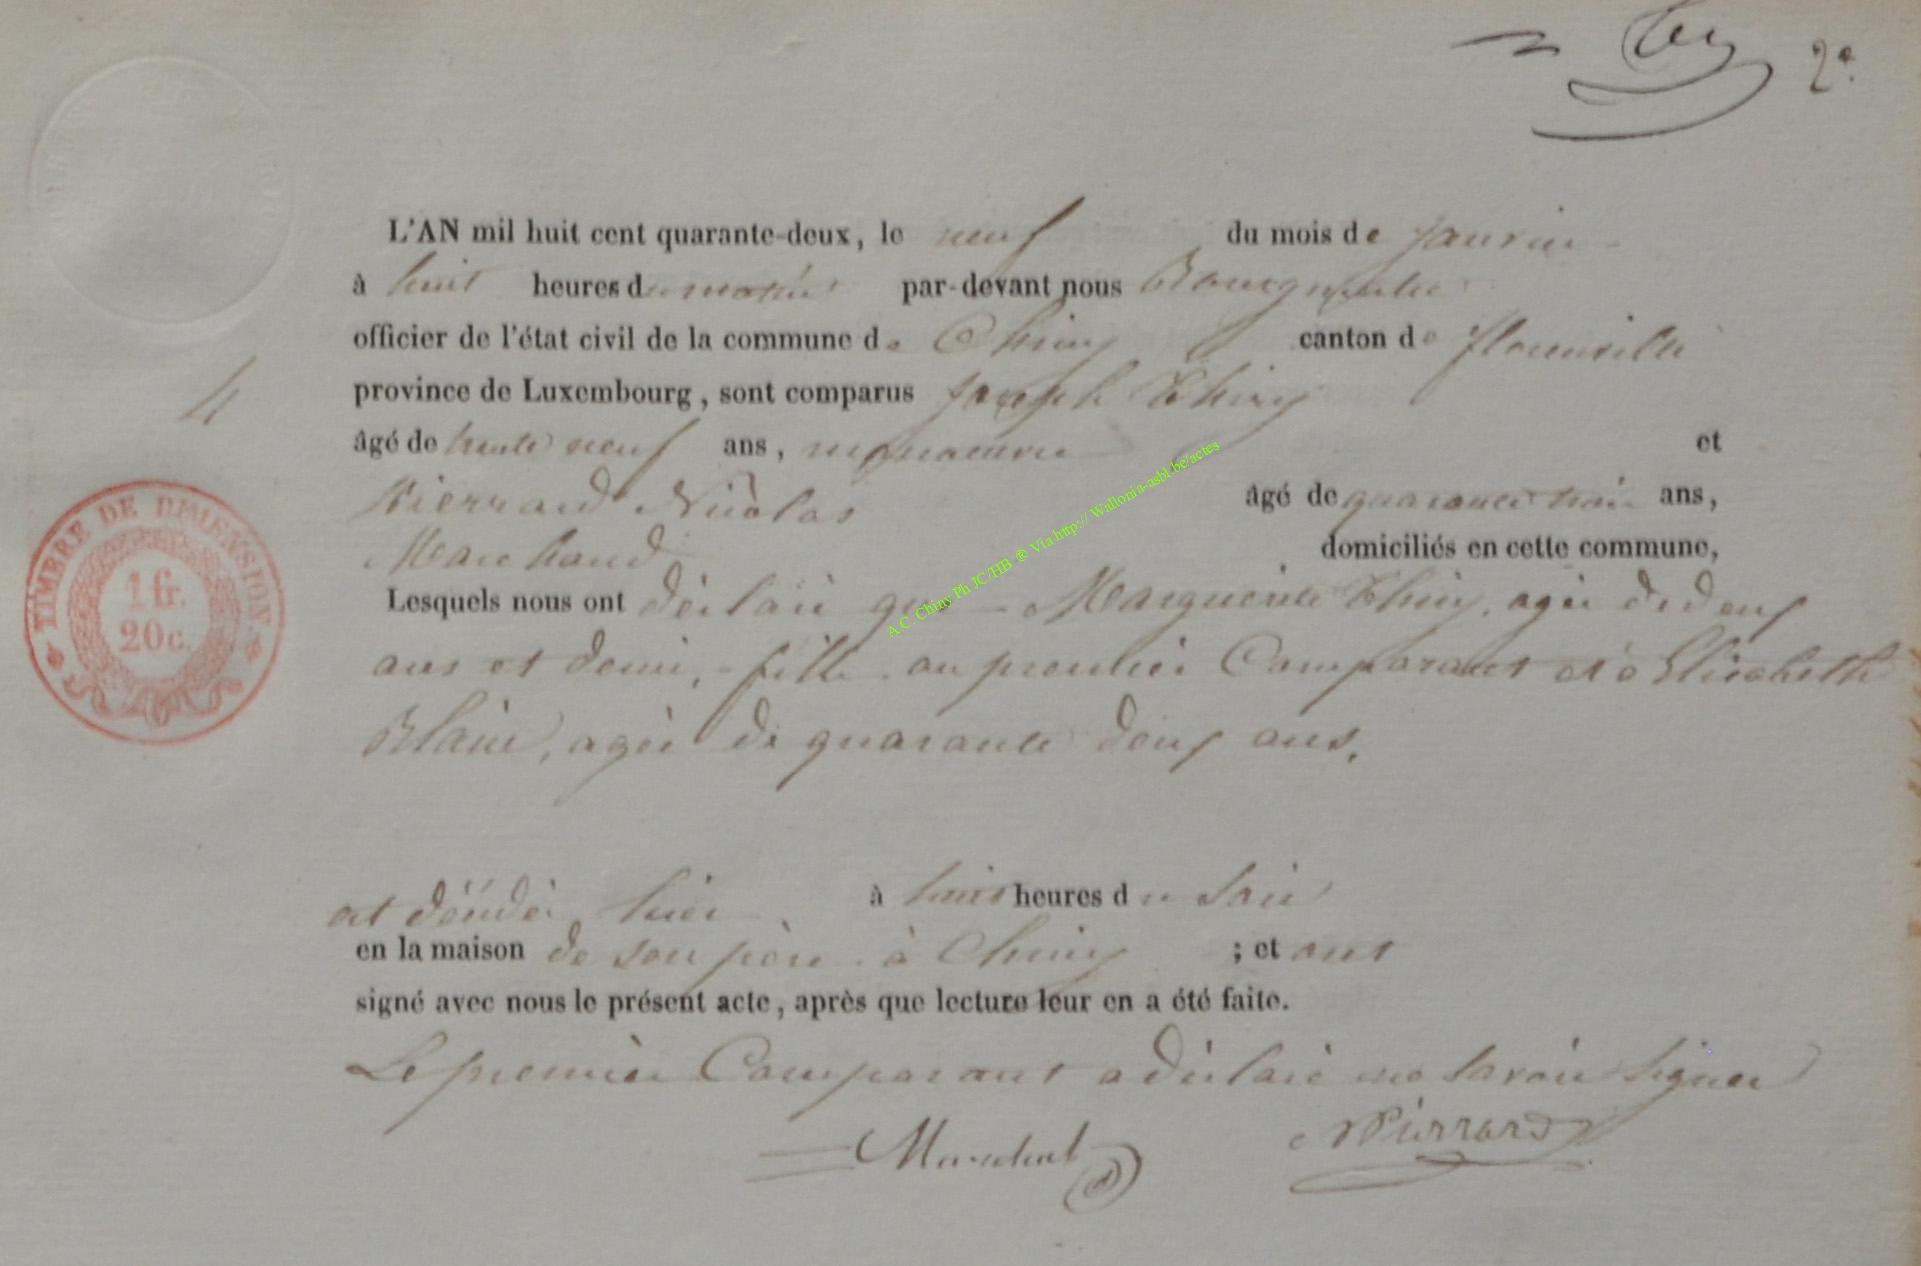 2e
L'AN mil huit cent quarante-deux, le neuf du mois de janvier
à huit heures du matin par-devant nous Bourgmestre
officier de l'état civil de la commune de Chiny canton de florenville
province de Luxembourg, sont comparus Joseph Thiry
âgé de trente neuf ans, manoeuvre et
Pierrard Nicolas âgé de quarante trois ans,
Marchand domiciliés en cette commune,
Lesquels nous ont déclaré que Marguerite Thiry, agée de deux
ans et demi, fille au premier Comparant et à Elisabeth
Blaise, agée de quarante deux ans,
est décédée hier à huit heures du soir
en la maison de son père à Chiny ; et ont
signé avec nous le présent acte, après que lecture leur en a été faite.
Le premier Comparant a déclaré ne savoir signer
Marechal NPierrard
4
TIMBRE DE DIMENSION
1 fr.
20c.
A C. Chiny Ph JC/HB ® Via http:// Wallonia-asbl.be/actes